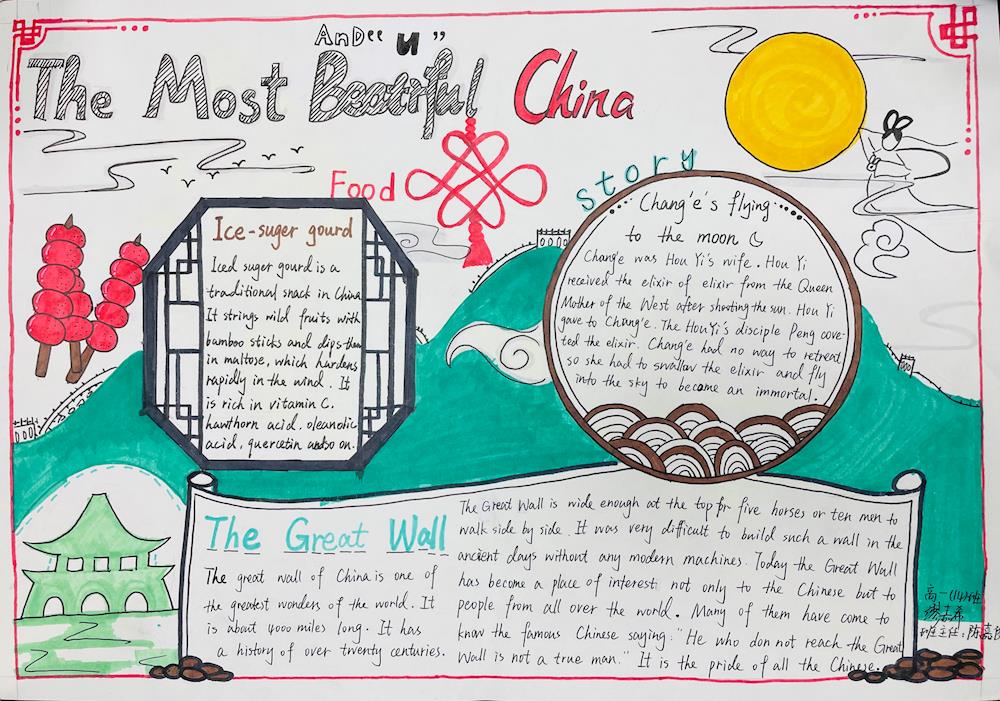 AnD “u”
The Most Beautiful China
Food
Ice-suger gourd
Iced suger gourd is a
traditional snack in China
It strings wild fruits with
bamboo sticks and dips them
in maltose, which hardens
rapidly in the wind. It
is rich in vitamin C.
hawthorn acid, oleanolic
acid, quercetin and so on.
story
Chang'e's flying
to the moon
Chang'e was Hou Yi's wife. Hou Yi
received the elixir of elixir from the Queen
Mother of the West after shooting the sun. Hou Yi
gave to Chang'e. The Hou Yi's disciple Peng cove-
ted the elixir. Chang'e had no way to retreat,
so she had to swallow the elixir and fly
into the sky to become an immortal.
The Great Wall
The great wall of China is one of
the greatest wonders of the world. It
is about 4000 miles long. It has
a history of over twenty centuries.
The Great Wall is wide enough at the top for five horses or ten men to
walk side by side. It was very difficult to build such a wall in the
ancient days without any modern machines. Today the Great Wall
has become a place of interest not only to the Chinese but to
people from all over the world. Many of them have come to
know the famous Chinese saying: "He who don not reach the Great
Wall is not a true man." It is the pride of all the Chinese.
高一(14)班
缪志希
班主任:陈亮